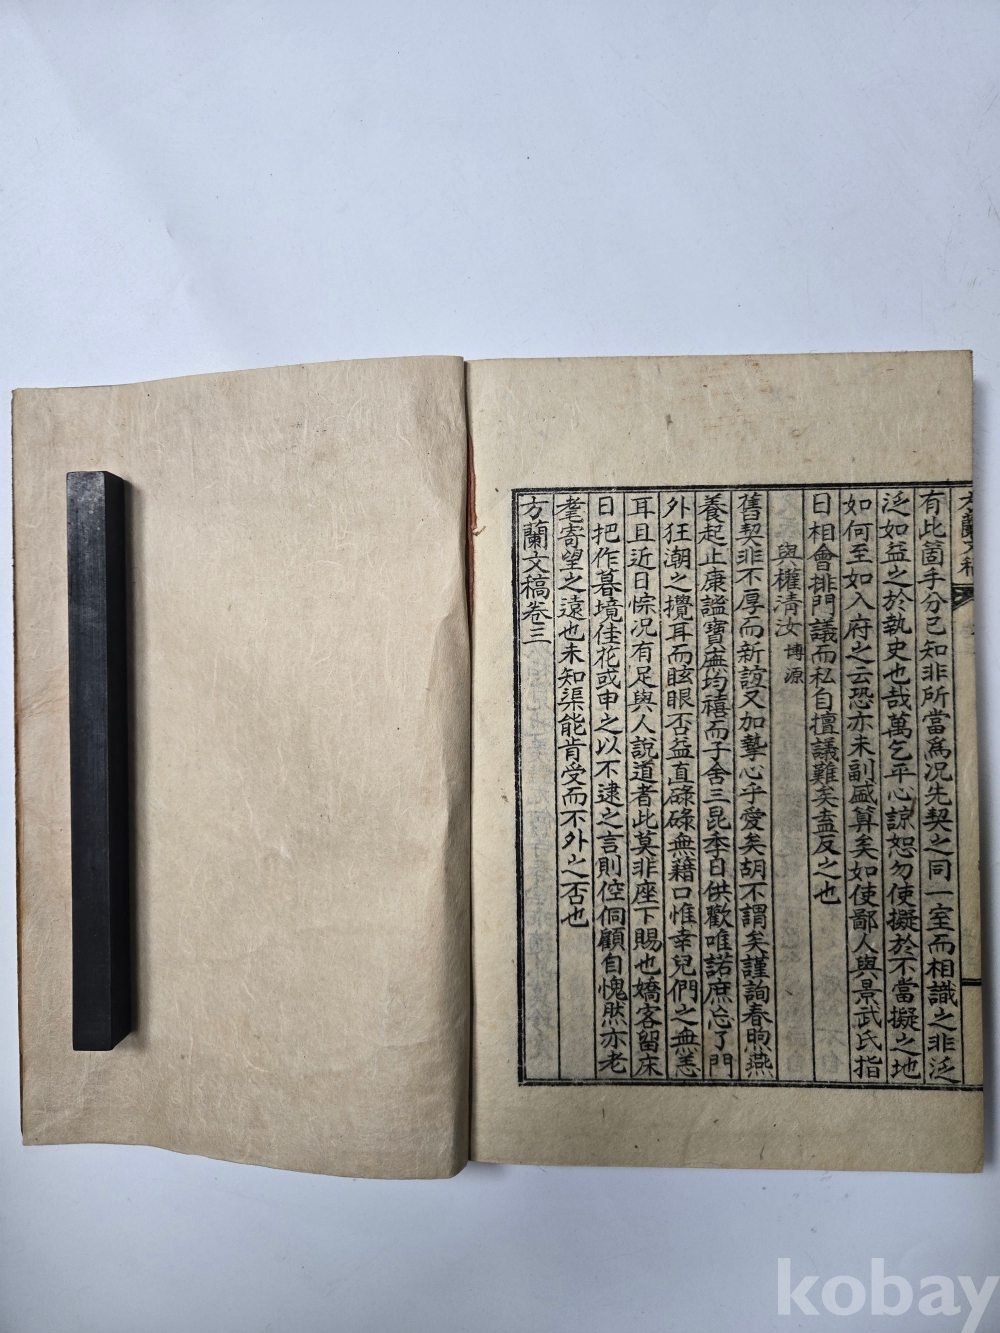 方蘭文稿
有此箇手分已知非所當爲况先契之同一室而相識之非泛
泛如益之於執史也哉萬乞平心諒恕勿使擬於不當擬之地
如何至如入府之云恐亦未副盛算矣如使鄙人與景武氏指
日相會排門議而私自擅議難矣盍反之也
與權清汝博源
舊契非不厚而新誼又加摯心乎愛矣胡不謂矣謹詢春煦燕
養起止康謐寶廡均禧而子舍三昆季日供歡唯諾庶忘了門
外狂潮之攪耳而眩眼否益直碌碌無藉口惟幸兒們之無恙
耳且近日悰况有足與人說道者此莫非座下賜也嬌客留床
日把作暮境佳花或申之以不逮之言則倥侗顧自愧然亦老
耄寄望之遠也未知渠能肯受而不外之否也
方蘭文稿卷三
kobay